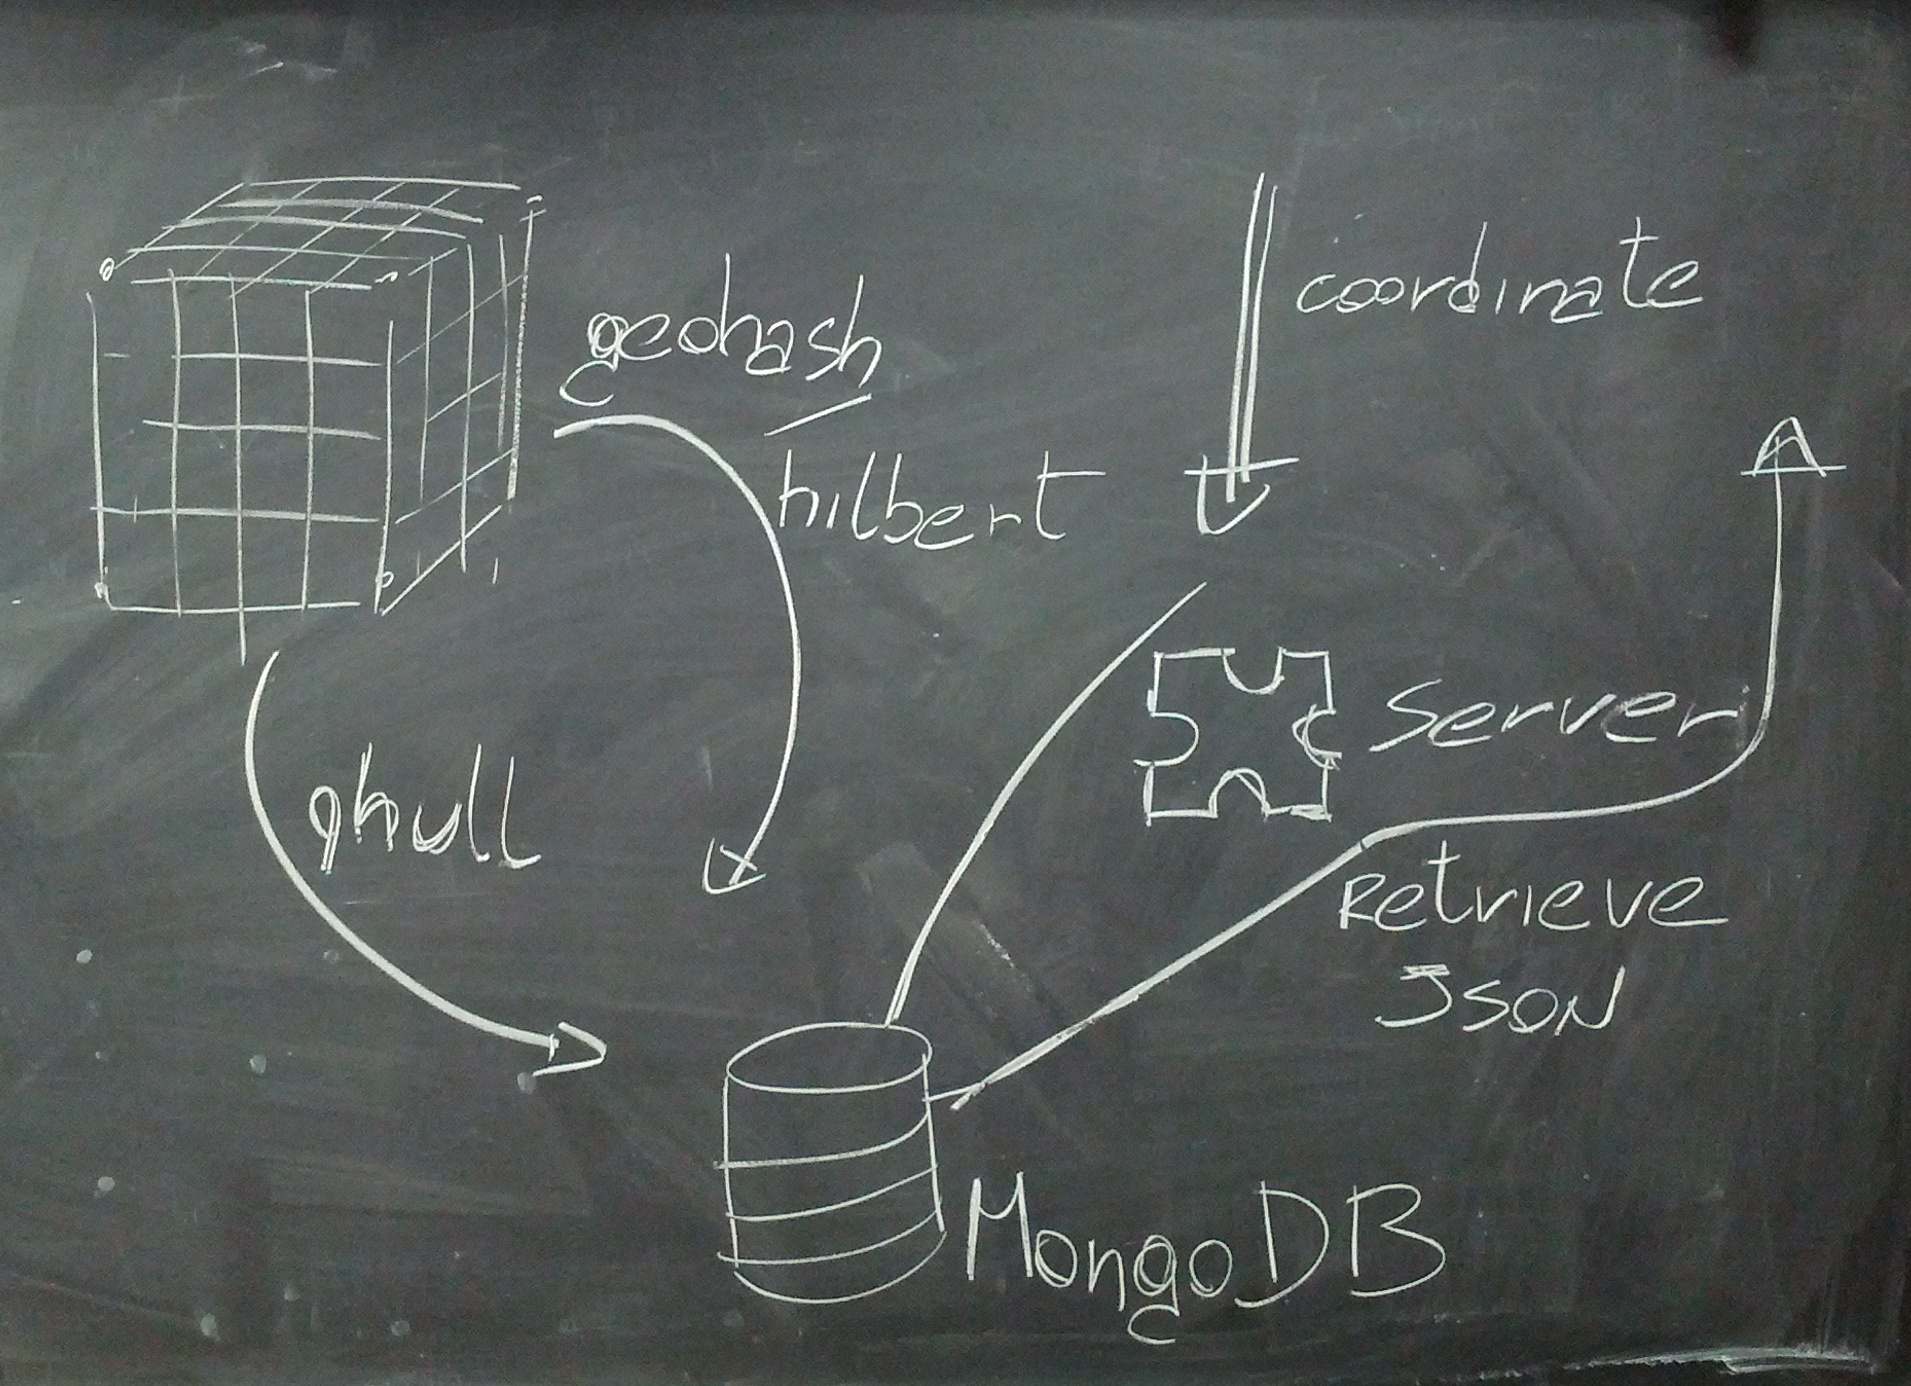 geohash /
hilbert
qhull
coordinate
Server
Retrieve
JSON
MongoDB